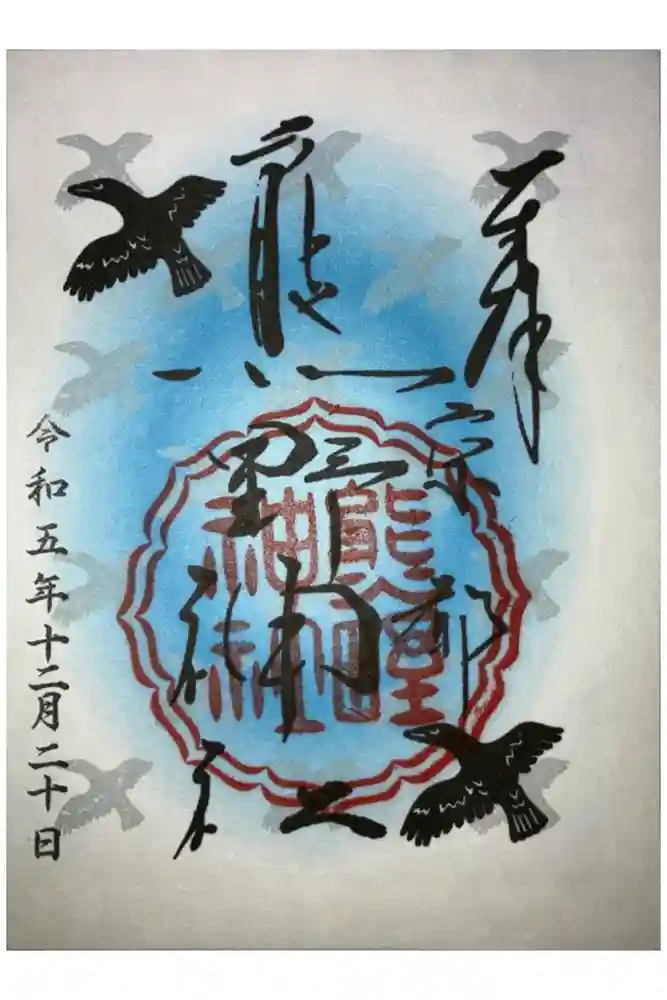 奉拝
京都
熊野神社
熊野
神社
令和五年十二月二十日